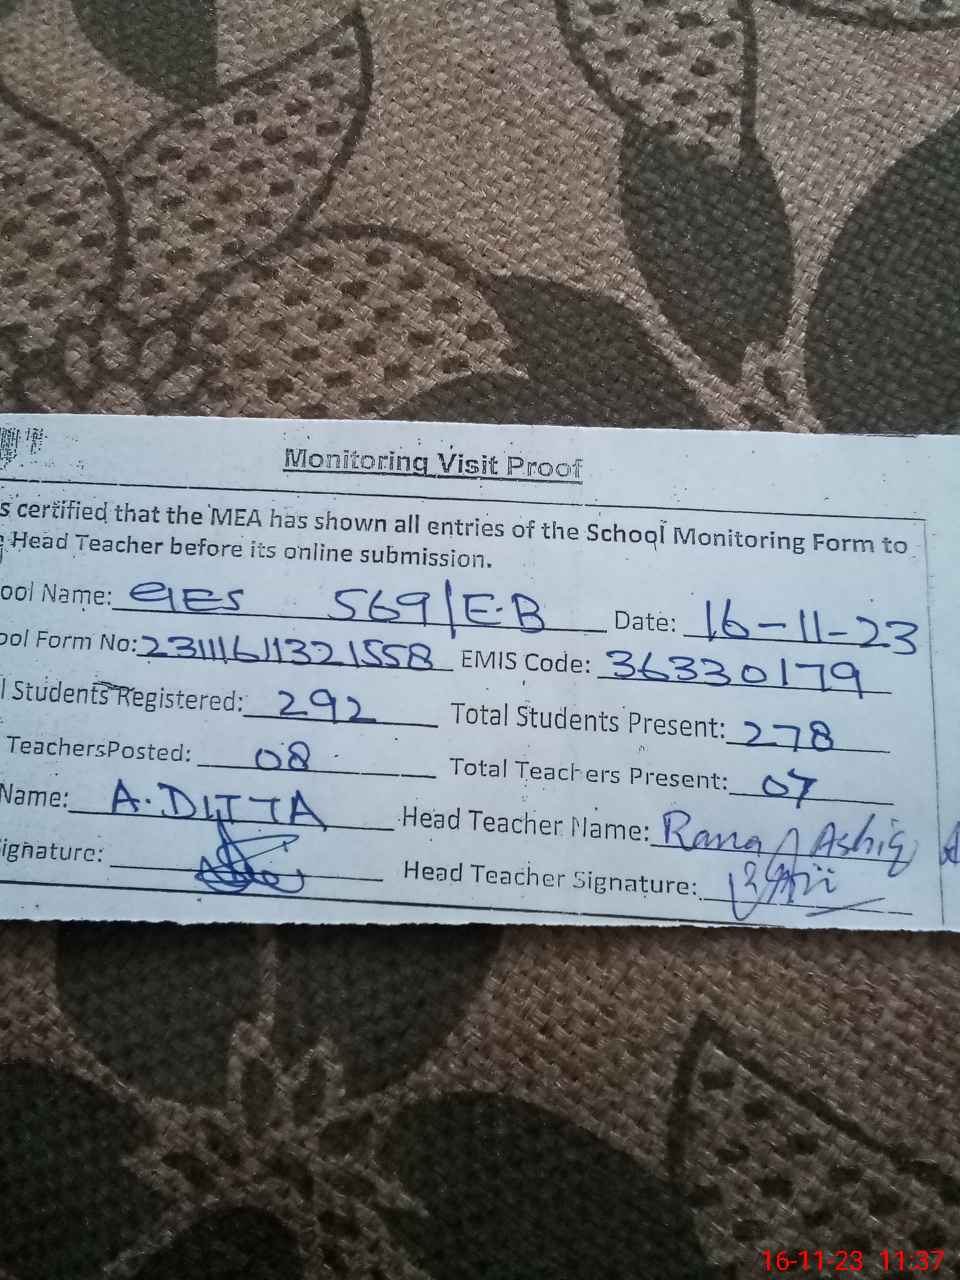 Monitoring Visit Proof
s certified that the MEA has shown all entries of the School Monitoring Form to
e Head Teacher before its online submission.
ool Name: GES 569/E.B Date: 16-11-23
ool Form No: 23111611321558 EMIS Code: 36330179
l Students Registered: 292 Total Students Present: 278
TeachersPosted: 08 Total Teachers Present: 07
Name: A.DITTA Head Teacher Name: Rana Ashiq
ignature: Head Teacher Signature:
16-11-23 11:37